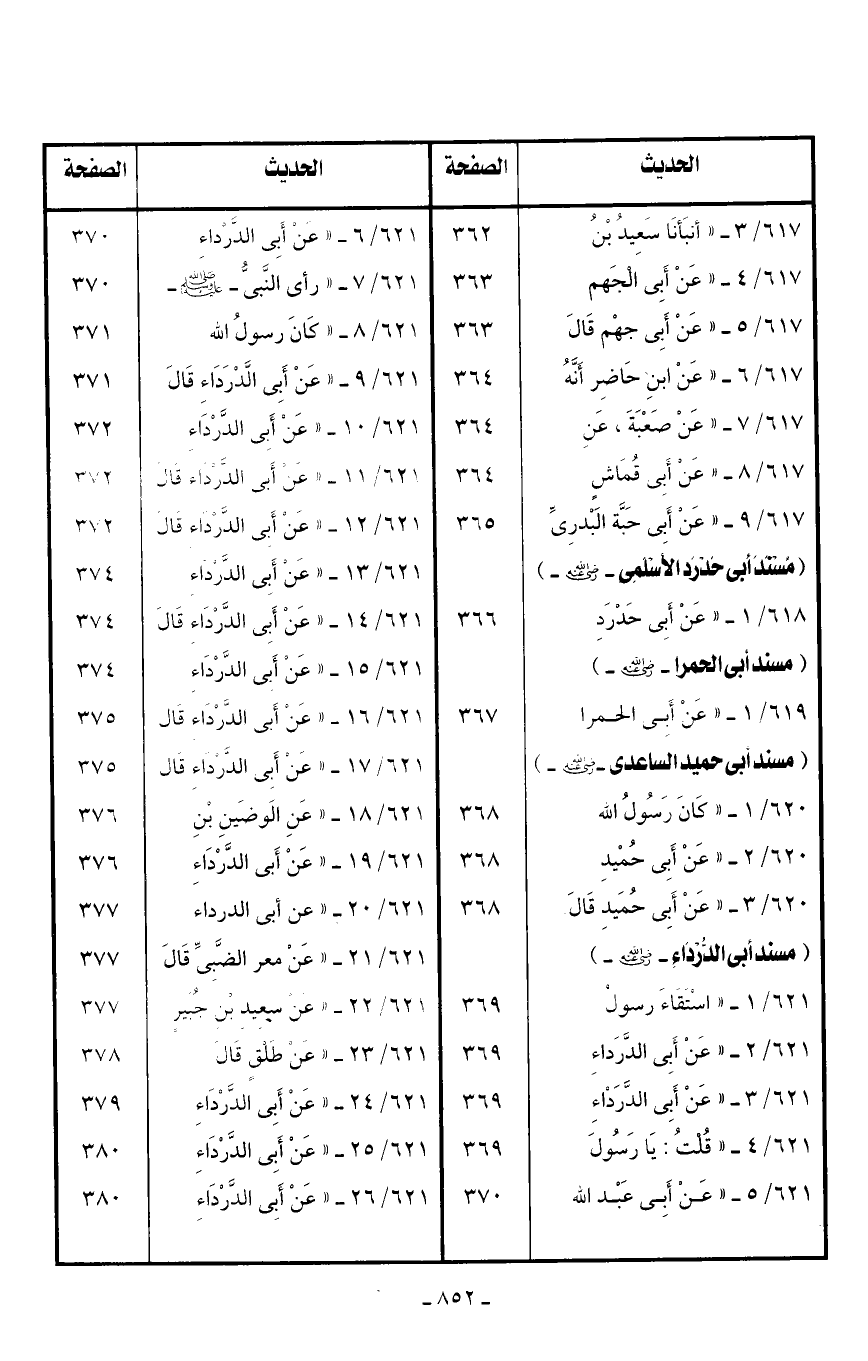 الحديث
الصفحة
٣/٦١٧ ـ « أنبَأنَا سَعِيدُ بْنُ
٣٦٢
٤/٦١٧ ـ « عَنْ أَبِى الْجَهِم
٣٦٣
٥/٦١٧ ـ « عَنْ أبى جهْم قَالَ
٣٦٣
٦/٦١٧ ـ « عَنْ ابنِ حَاضرِ أَنَّهُ
٣٦٤
٧/٦١٧ ـ « عَنْ صَعَبْةَ ، عَنِ
٣٦٤
٨/٦١٧ ـ « عَنْ أبى قُمَاشٍ
٣٦٤
٩/٦١٧ ـ « عَنْ أبى حَبَّة الَبْدرِىِّ
٣٦٥
( مُسْنَدَ أبى حَدْرَد الأسْلَمِى ـ رضي الله عنه ـ )
١/٦١٨ ـ « عَنْ أبى حَدْرَدِ
٣٦٦
( مسند أبى الحمرا ـ رضي الله عنه ـ )
١/٦١٩ ـ « عَنْ أَبـى الحـمرا
٣٦٧
( مسند أبى حميد الساعدى ـ رضي الله عنه ـ )
١/٦٢٠ ـ « كَانَ رَسُولُ الله
٣٦٨
٢/٦٢٠ ـ « عَنْ أَبى حُمْيِد
٣٦٨
٣/٦٢٠ ـ « عَنْ أَبى حُمَيدِ قَالَ
٣٦٨
( مسند أبى الدَّرْدَاءِ ـ رضي الله عنه ـ )
١/٦٢١ ـ « اسْتَقَاءَ رسولْ
٣٦٩
٢/٦٢١ ـ « عَنْ أَبِى الدَّردَاء
٣٦٩
٣/٦٢١ ـ « عَنْ أَبِى الدَّرَدْاءِ
٣٦٩
٤/٦٢١ ـ « قُلْتُ : يَا رَسُولَ
٣٦٩
٥/٦٢١ ـ « عَـنْ أَبـى عَبْـد الله
٣٧٠
الحديث
الصفحة
٦/٦٢١ ـ « عَنْ أَبِى الدَّرْدَاءِ
٣٧٠
٧/٦٢١ ـ « رأى النَّبىُّ ـ ﷺ ـ
٣٧٠
٨/٦٢١ ـ « كَانَ رسولُ الله
٣٧١
٩/٦٢١ ـ « عَنْ أَبِى الَّدْردَاءِ قَالَ
٣٧١
١٠/٦٢١ ـ « عَنْ أَبِى الدَّرْدَاءِ
٣٧٢
١١/٦٢١ ـ « عَنْ أَبِى الدَّرْدَاءِ قَالَ
٣٧٢
١٢/٦٢١ ـ « عَنْ أَبِى الدَّرْدَاءِ قَالَ
٣٧٢
١٣/٦٢١ ـ « عَنْ أَبِى الدَّرْدَاءِ
٣٧٤
١٤/٦٢١ ـ « عَنْ أَبِى الدَّرْدَاءِ قَالَ
٣٧٤
١٥/٦٢١ ـ « عَنْ أَبِى الدَّرْدَاءِ
٣٧٤
١٦/٦٢١ ـ « عَنْ أَبِى الدَّرْدَاءِ قَال
٣٧٥
١٧/٦٢١ ـ « عَنْ أَبِى الدَّرْدَاءِ قَال
٣٧٥
١٨/٦٢١ ـ « عَنِ الَوضَينِ بْنِ
٣٧٦
١٩/٦٢١ ـ « عَنْ أَبِى الدَّرْدَاءِ
٣٧٦
٢٠/٦٢١ ـ « عن أبى الدرداء
٣٧٧
٢١/٦٢١ ـ « عَنْ معر الضبَّىِّ قَالَ
٣٧٧
٢٢/٦٢١ ـ « عَنْ سعِيدِ بْنِ جُبَيرٍ
٣٧٧
٢٣/٦٢١ ـ « عَنْ طَلْقٍ قَالَ
٣٧٨
٢٤/٦٢١ ـ « عَنْ أَبِى الدَّرْدَاءِ
٣٧٩
٢٥/٦٢١ ـ « عَنْ أَبِى الدَّرْدَاءِ
٣٨٠
٢٦/٦٢١ ـ « عَنْ أَبِى الدَّرْدَاءِ
٣٨٠
ـ ٨٥٢ ـ